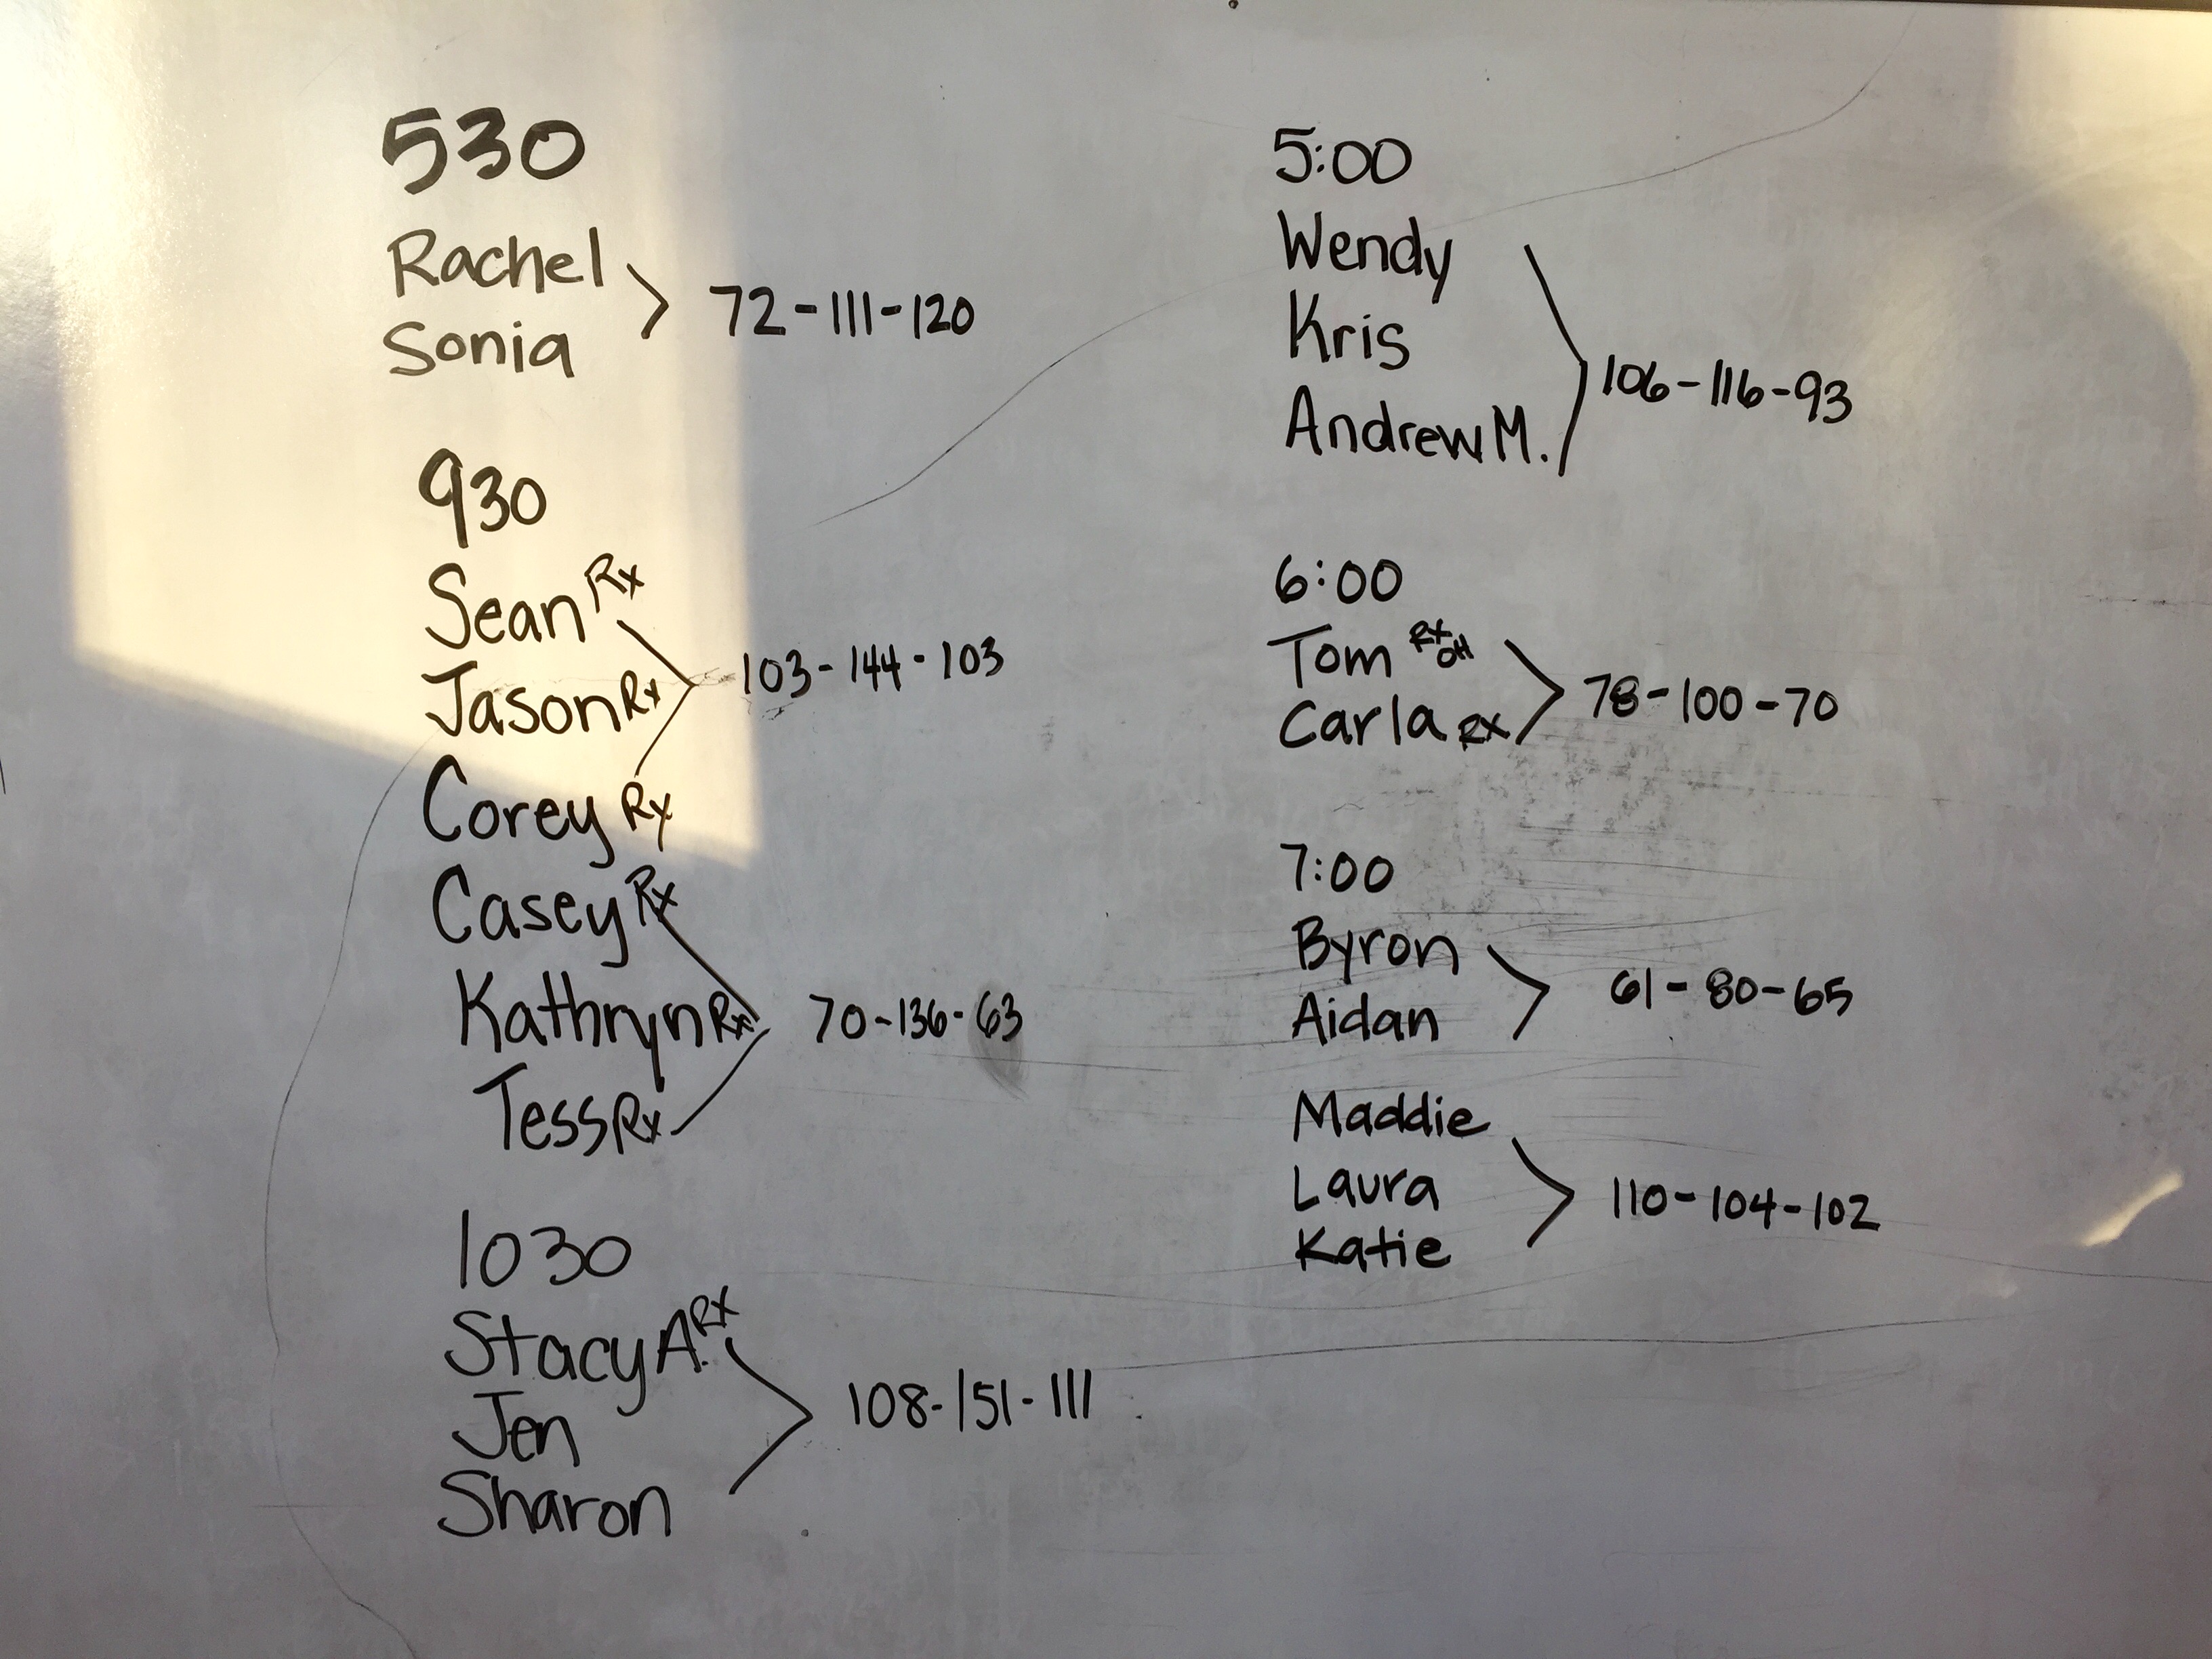 530
Rachel
Sonia
72-111-120
930
Sean Rx
Jason Rx
Corey Rx
103-144-103
Casey Rx
Kathryn Rx
Tess Rx
70-136-63
1030
Stacy A. Rx
Jen
Sharon
108-151-111
5:00
Wendy
Kris
Andrew M.
106-116-93
6:00
Tom RX OH
Carla RX
78-100-70
7:00
Byron
Aidan
61-80-65
Maddie
Laura
Katie
110-104-102